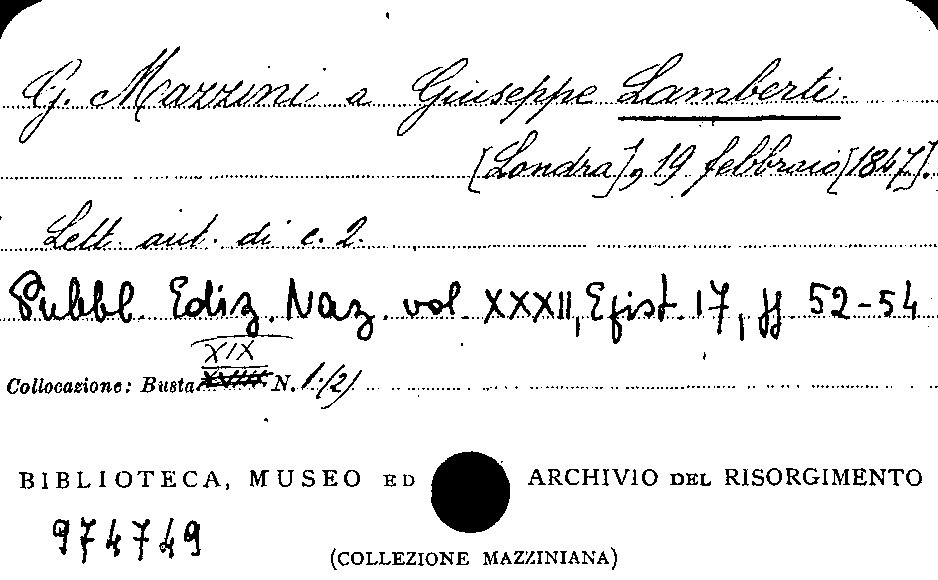 G. Mazzini a Giuseppe Lamberti.
[Londra], 19 febbraio [1847].
Lett. aut. di c. 2.
Pubbl. Ediz. Naz. vol. XXXII, Epist. 17, pp. 52-54
XIX
Collocazione: Busta XVIII N. 1.(2)
BIBLIOTECA, MUSEO ED ARCHIVIO DEL RISORGIMENTO
974749
(COLLEZIONE MAZZINIANA)